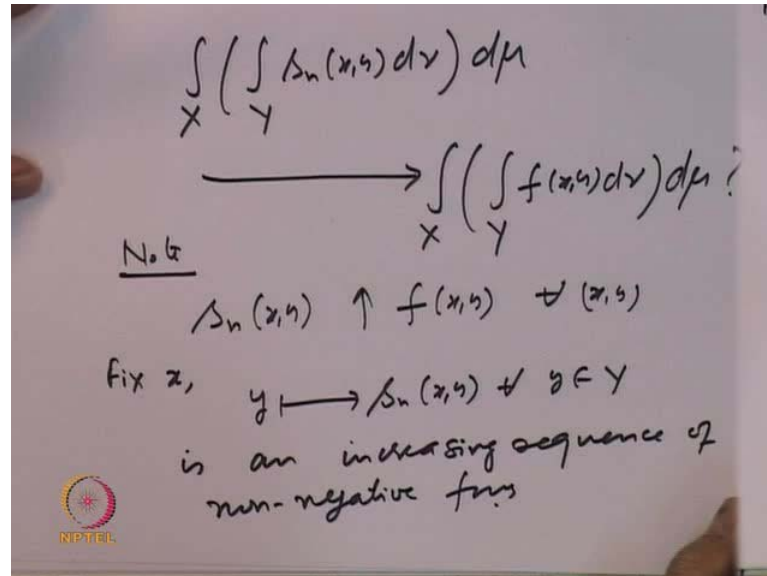 ∫_X ( ∫_Y s_n(x,y) dν ) dμ
⟶ ∫_X ( ∫_Y f(x,y) dν ) dμ ?
Note
s_n(x,y) ↑ f(x,y) ∀ (x,y)
Fix x,
y ⟼ s_n(x,y) ∀ y ∈ Y
is an increasing sequence of
non-negative fns
NPTEL